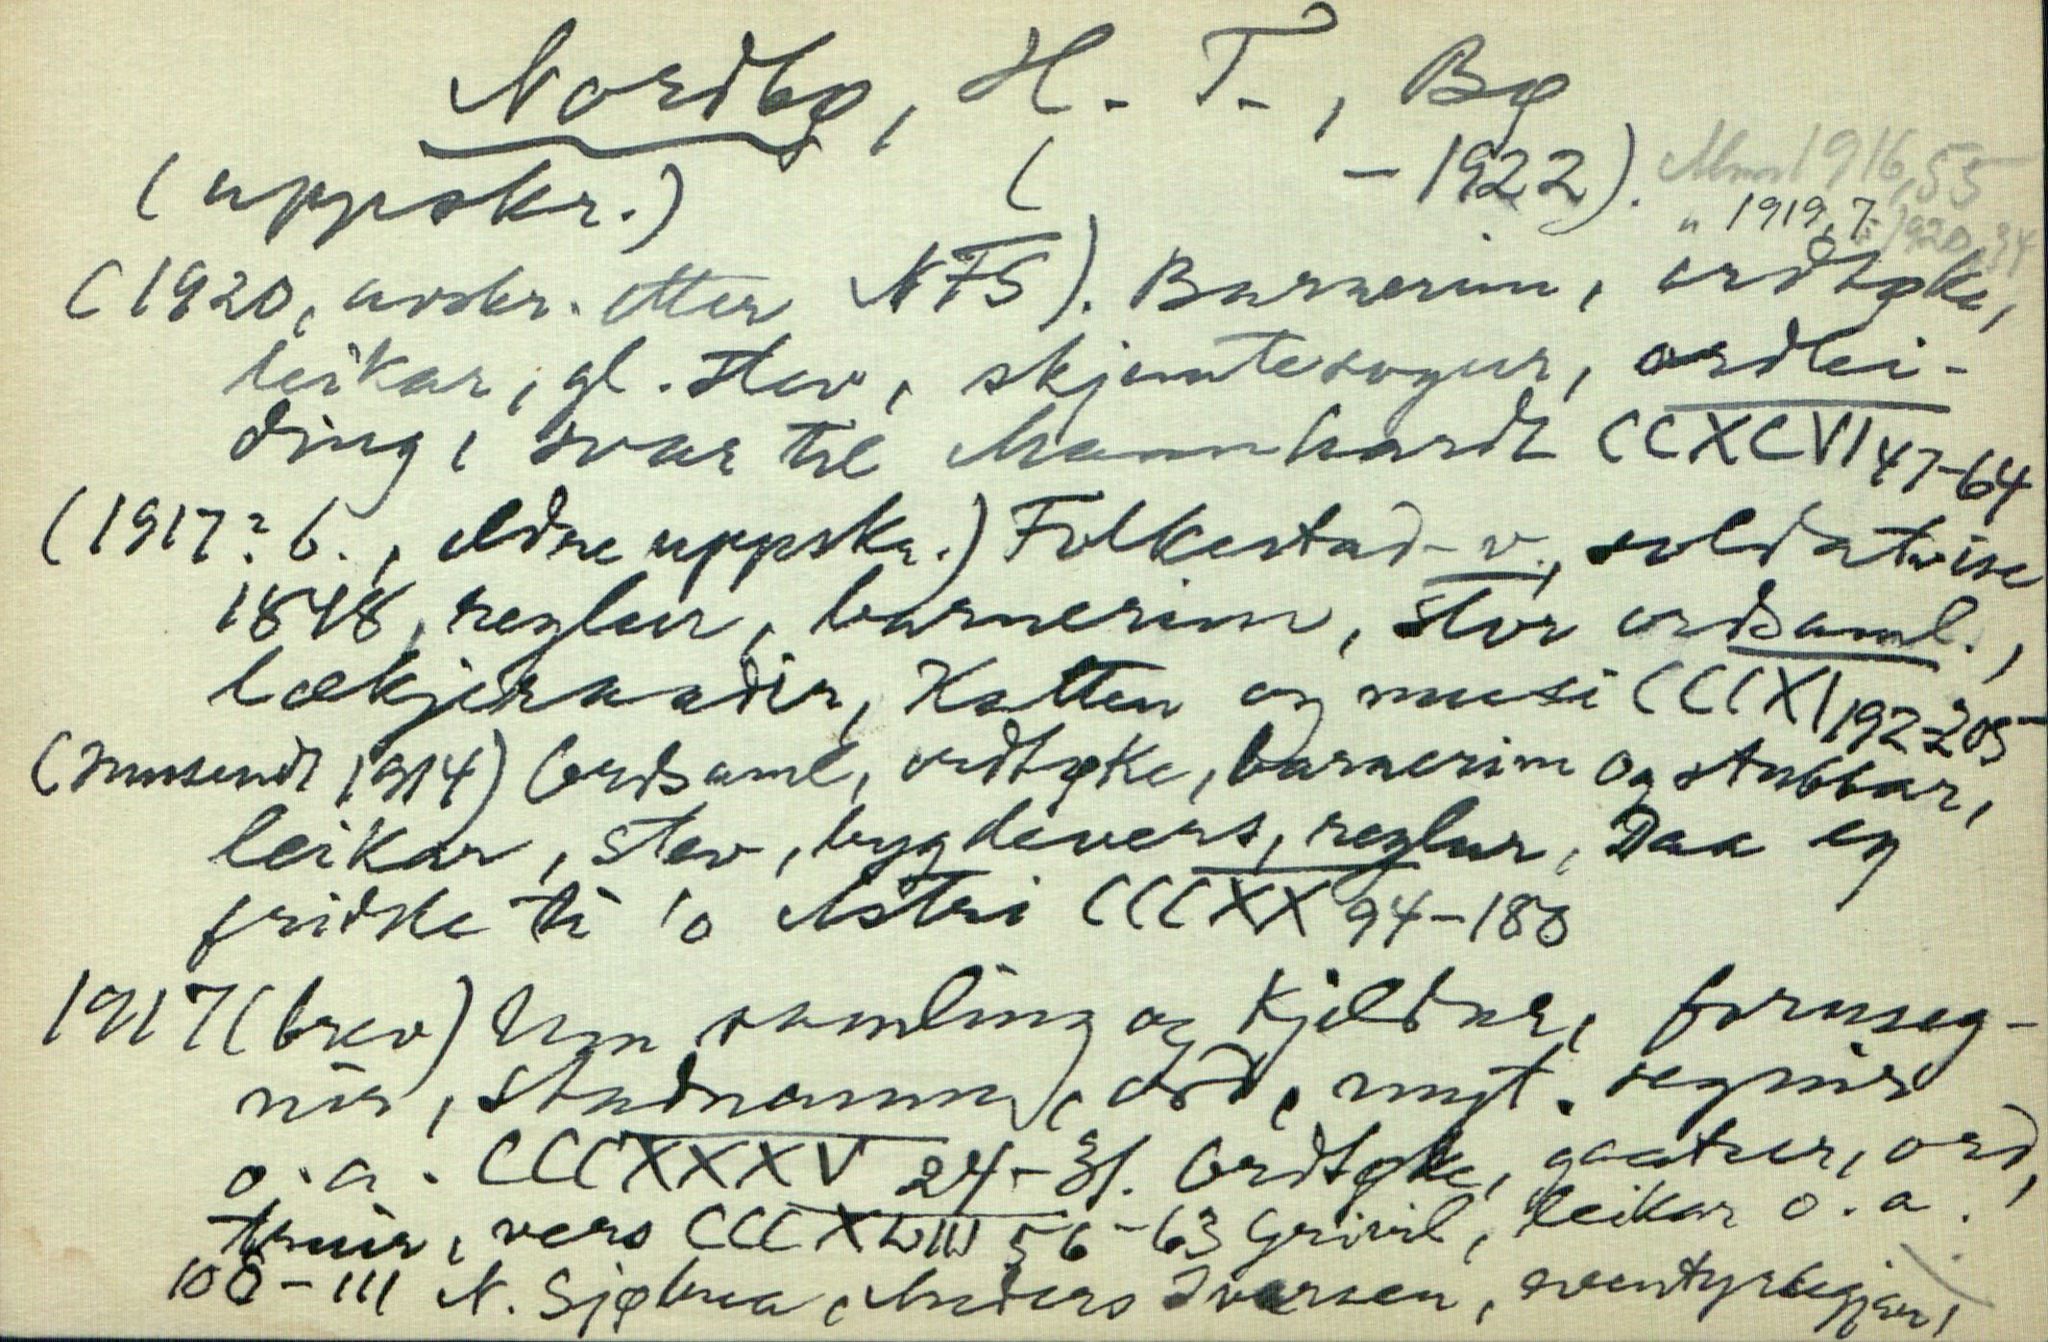 Nordbø, H. T., Bø
(uppskr.) ( - 1922). 1916, 55
" 1919, 7. 1920, 34
(1920, avskr. etter NFS). Barnerim, ordtøke,
leikar, gl. stev, skjemtesogur, ordlei-
ding, svar til Mannhardt CCXCVI 47-64
(1917? b., eldre uppskr.) Folkestad-v., soldatvise
1848, reglur, barnerim, stor ordsaml.,
lækjeraadir, Katten og musi CCCXI 192-205
(Innsendt 1914) Ordsaml, ordtøke, barnerim og stubbar,
leikar, stev, bygdevers, reglur, Daa eg
fridde ti 'o Astri CCCXX 94-188
1917 (brev) Um samling og kjeldur, fornseg-
nir, stadnamn, ord, myt. segnir
o.a. CCCXXXV 24-31. Ordtøke, gaatur, ord,
truir, vers CCCXLIII 56-63 Grivil, leikar o.a.
108-111 N. Sjøbua, Anders Iversen, eventyrkjær,